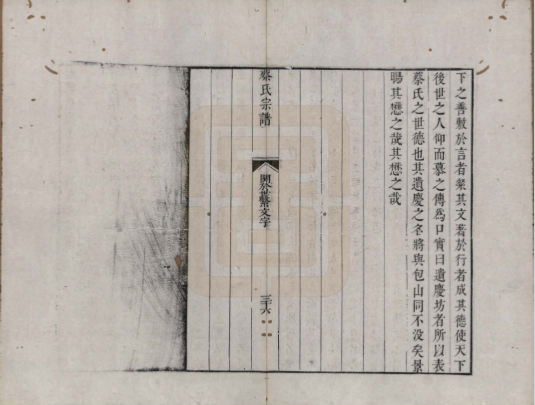 下之善敷於言者粲其文著於行者成其德使天下
後世之人仰而慕之傳爲口實曰遺慶坊者所以表
蔡氏之世德也其遺慶之名將與包山同不没矣景
暘其懋之哉其懋之哉
蔡氏宗譜
關於世蔡文字
三十六